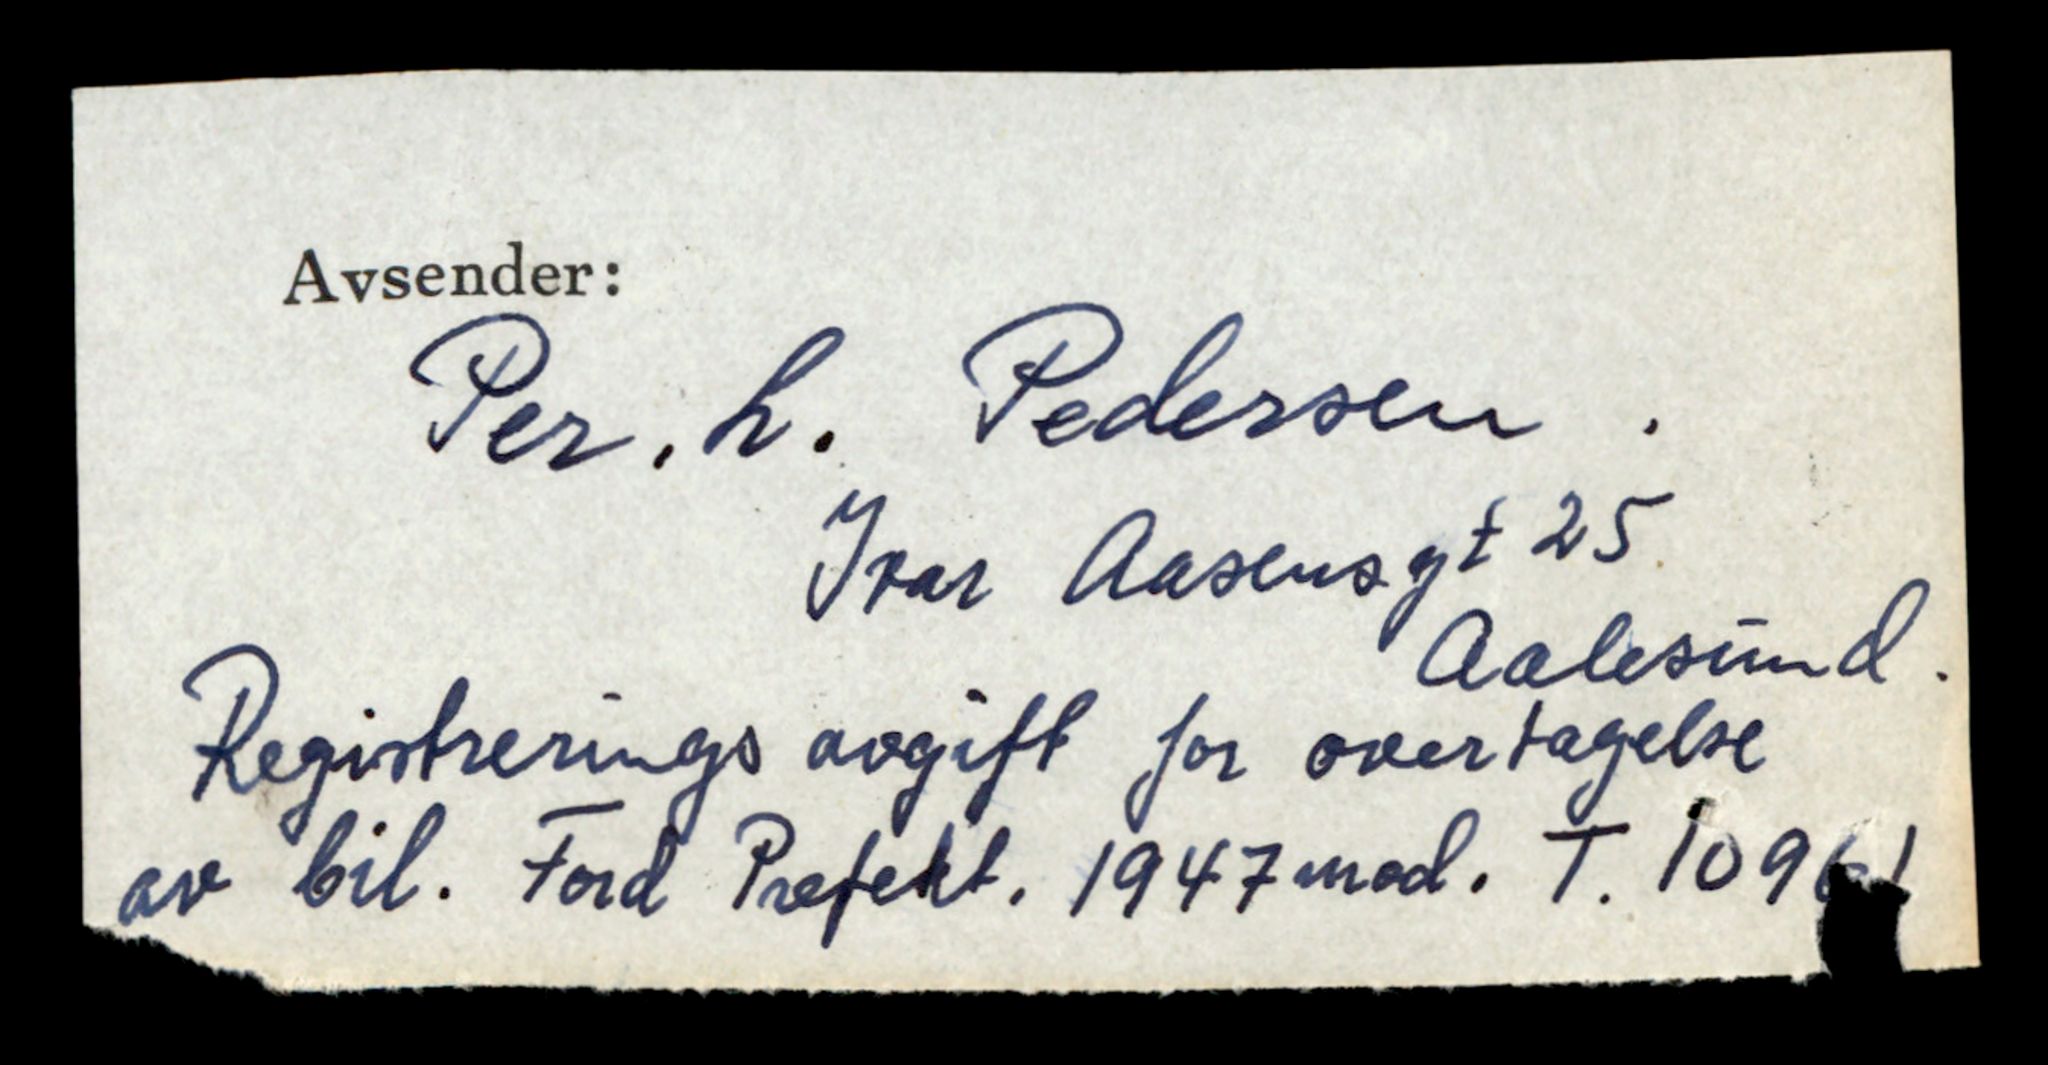 Avsender:
Per. h. Pedersen.
Ivar Aasensgt 25
Aalesund.
Registrerings avgift for overtagelse
av bil. Ford Prefekt. 1947 mod. T. 10961